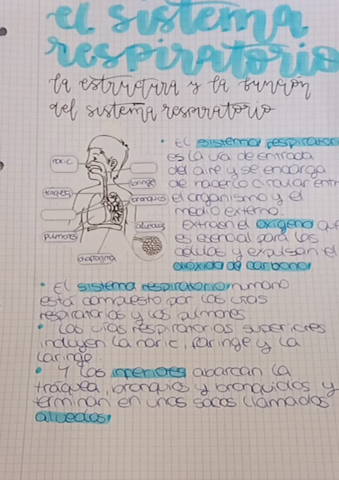 el sistema
respiratorio
la estructura y la función
del sistema respiratorio
• El sistema respiratorio
es la vía de entrada
del aire y se encarga
de hacerlo circular entre
el organismo y el
medio externo
extraen el oxígeno que
es esencial para las
células y expulsan el
dióxido de carbono.
nariz
laringe
tráquea
bronquios
alveolos
pulmones
diafragma
• El sistema respiratorio humano
está compuesto por las vías
respiratorias y los pulmones
• Las vías respiratorias superiores
incluyen la nariz, faringe y la
laringe.
• Y las inferiores abarcan la
tráquea, bronquios y bronquiolos y
terminan en unos sacos llamados
alveolos.